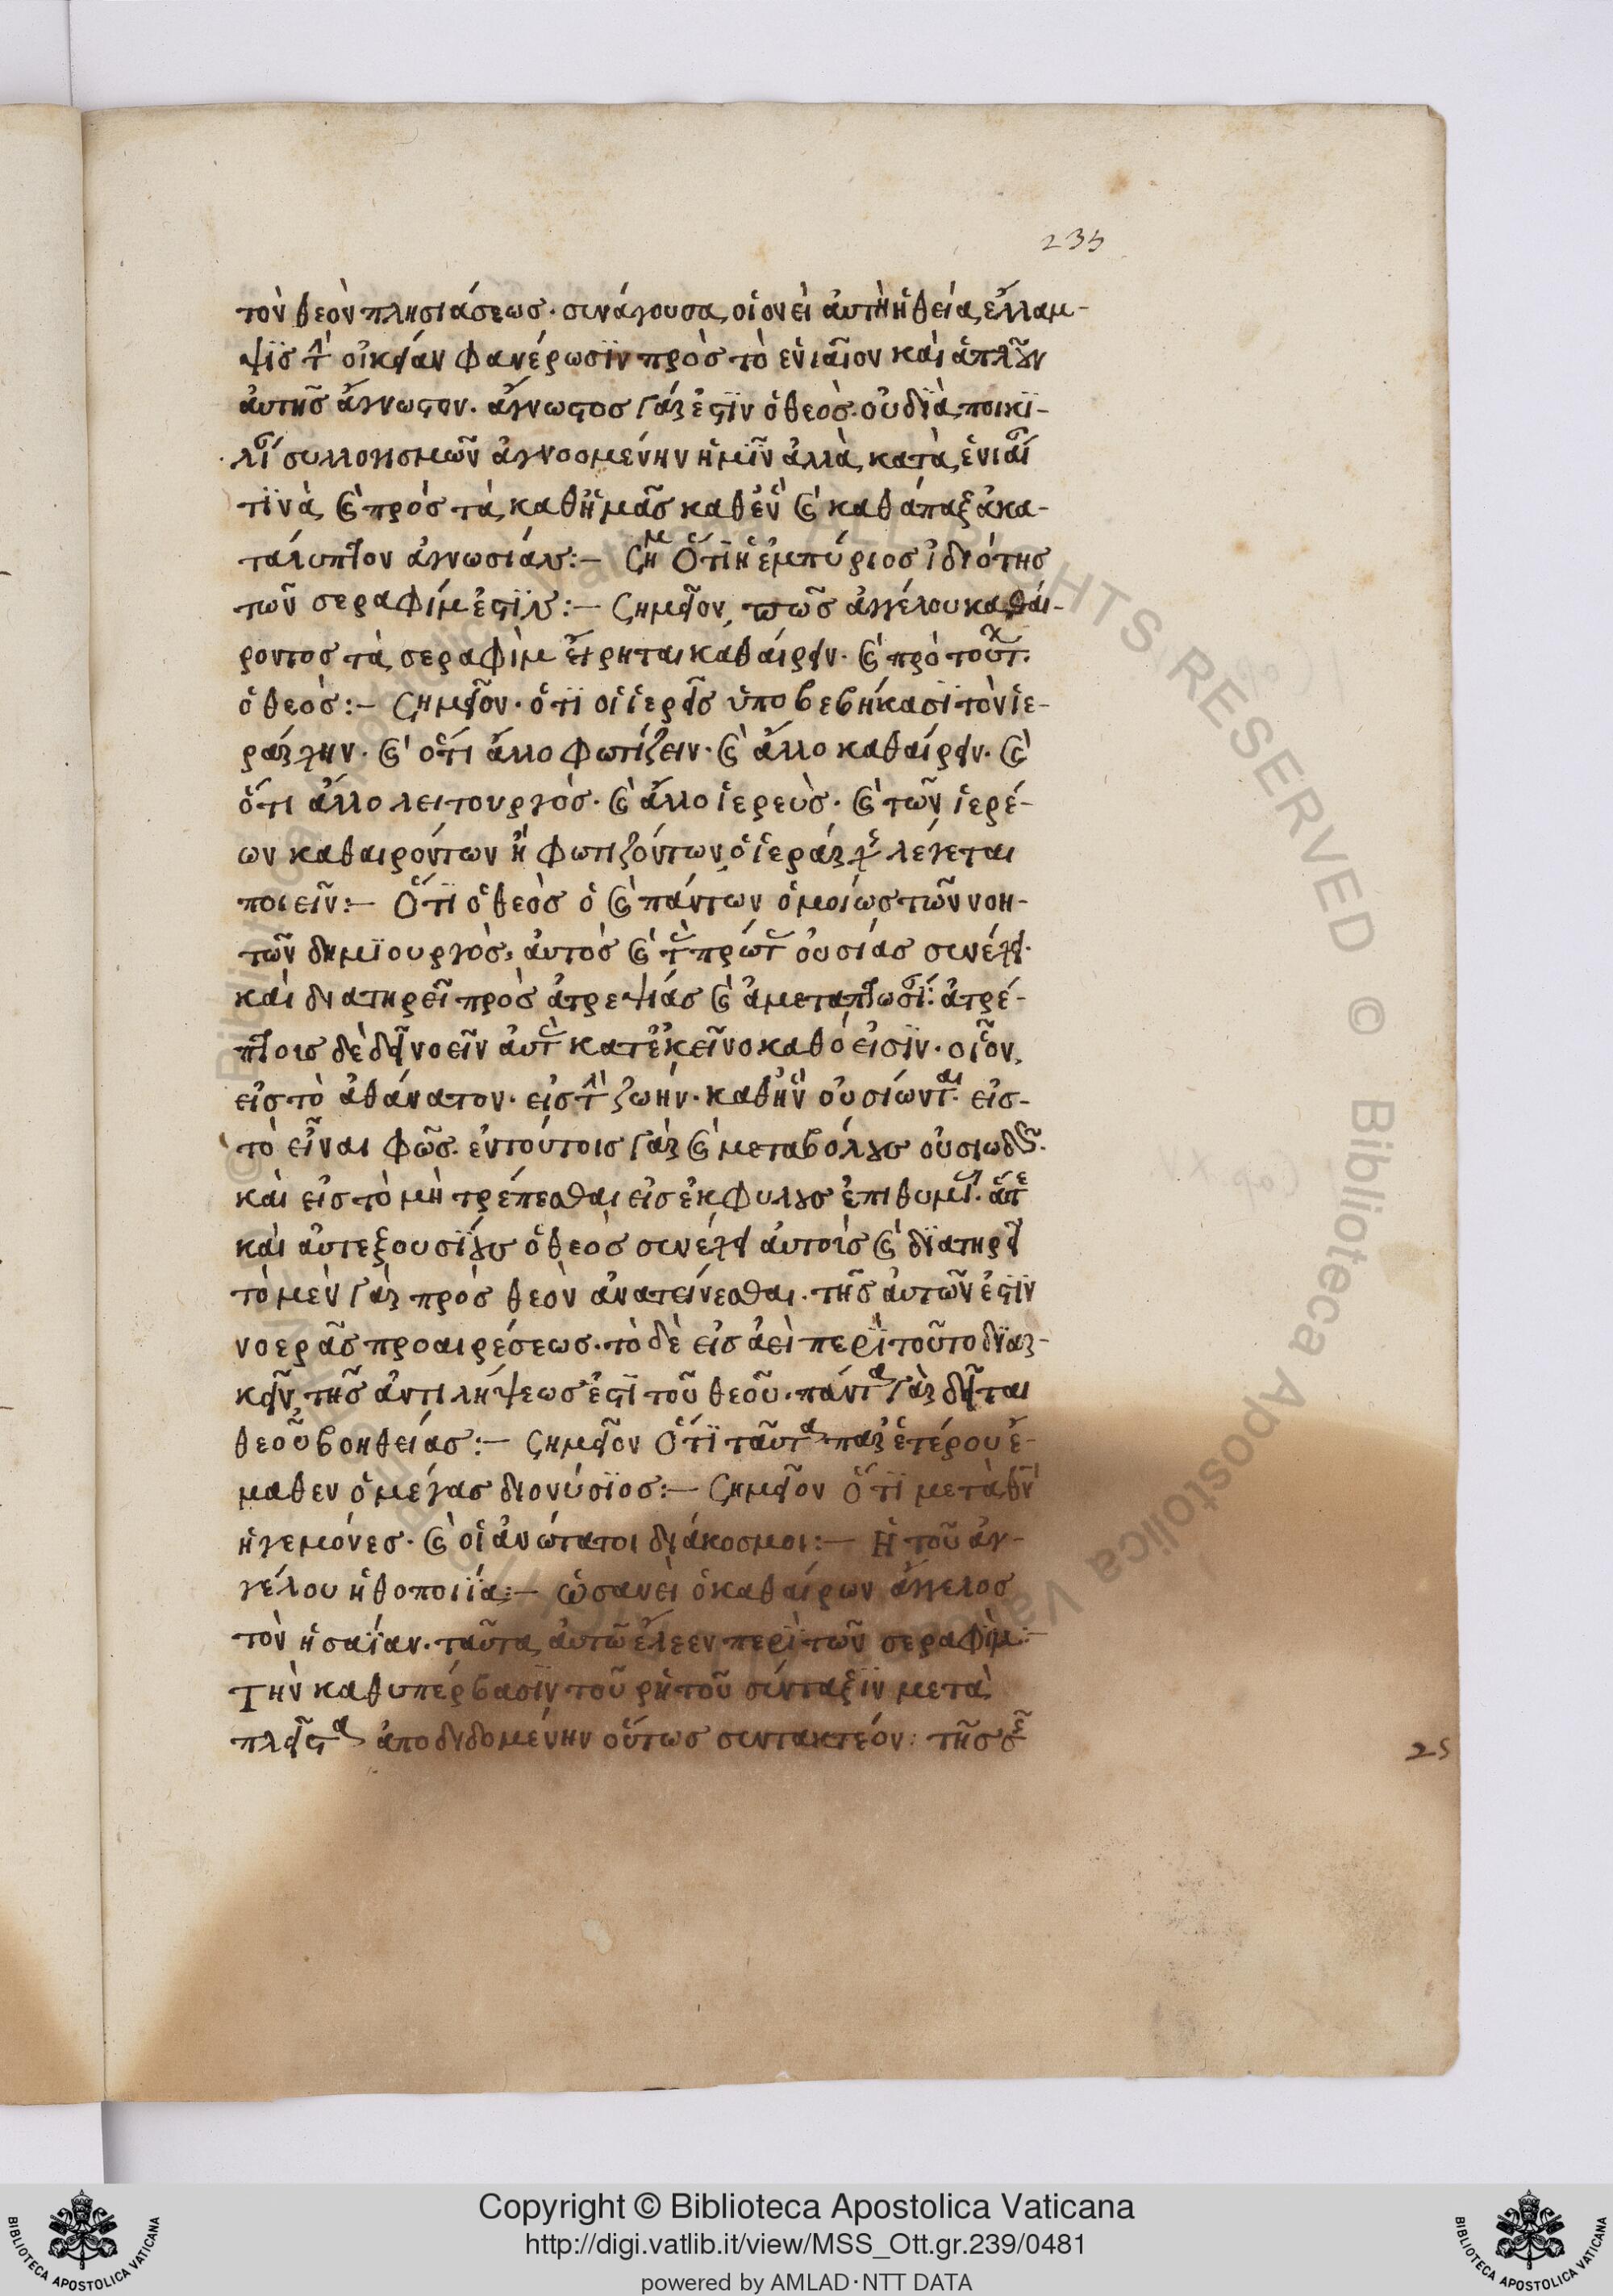 235
τὸν θεὸν πλησιάσεως· συνάγουσα, οἱονεὶ ἀυτὴ ἡ θεία, ἔλλαμ-
ψϊς τὴν οἰκείαν φανέρωσϊν πρὸς τὸ ἑνιαῖον καὶ ἁπλοῦν
ἀυτῆς ἄγνωστον. ἄγνωστος γάρ ἐστϊν ὁ θεὸς. οὐ δϊὰ ποικϊ-
συλλογισμῶν ἀγνοομένην ἡμῖν ἀλλὰ, κατὰ, ἑνιαί
τϊνὰ, καὶ πρὸς τὰ, καθ ἡμᾶς καθ ἓν καὶ καθάπαξ ἀκα-
τάλυπτον ἀγνωσίαν:— Ση Ὅτϊ ἡ ἐμπύριος ἰδιότης
τῶν σεραφίμ ἐστϊν:— Σημείον, πῶς ἀγγέλου καθάι-
ροντος τὰ, σεραφὶμ εἴρηται καθαίρειν. καὶ πρὸ τούτ.
ὁ θεὸς:— Σημείον· ὁτϊ οἱ ἱερεῖς ὑποβεβήκασϊ τὸν ἱε-
ράρχην. καὶ ὅτι ἄλλο φωτίζειν. καὶ ἄλλο καθαίρειν. καὶ
ὅτι ἄλλο λειτουργὸς. καὶ ἄλλο ἱερεὺς. καὶ τῶν ἱερέ-
ων καθαιρόντων ἢ φωτιζόντων, ὁ ἱεράρχης λέγεται
ποιεῖν:— Ὅτϊ ὁ θεὸς ὁ καὶ πάντων ὁμοίως τῶν νοη-
τῶν δημϊουργὸς, ἀυτὸς καὶ τὰς πρώτας οὐσίας συνέχει·
καὶ διατηρεῖ πρὸς ἀτρεψίας καὶ ἀμεταπτωσί: ἀτρέ-
πτοις δὲ δεῖ νοεῖν ἀυτὰς κατ ἐκεῖνο καθό εἰσϊν. οἷον,
εἰς τὸ ἀθάνατον. εἰς τὴν ζωήν. καθ ἣν οὐσίωνται. εἰσ-
τὸ εἶναι φῶς. ἐν τούτοις γὰρ καὶ μεταβόλους οὐσιωδῶς.
καὶ εἰς τὸ μὴ τρέπεσθαι εἰς ἐκφύλους ἐπιθυμί.
καὶ ἀυτεξουσΐους ὁ θεὸς συνέχει ἀυτοὶς καὶ δϊατηρεῖ
τὸ μὲν γὰρ πρὸς θεὸν ἀνατείνεσθαι. τῆς ἀυτῶν ἐστϊν
νοερᾶς προαιρέσεως. τὸ δὲ εἰς ἀεὶ περὶ τοῦτο δϊαρ-
κεῖν, τῆς ἀντιλήψεως ἐστϊ τοῦ θεοῦ. πάντα γὰρ δεῖται
θεοῦ βοηθείας:— Σημείον Ὅτϊ ταῦτα παρ ἑτέρου ἔ-
μαθεν ὁ μέγας διονύσϊος:— Σημείον Ὅτϊ μετὰ θν
ἡγεμόνες. καὶ οἱ ἀνώτατοι διάκοσμοι:— Ἡ τοῦ ἀγ-
γέλου ἠθοποιΐα:— ὡσανεὶ ὁ καθαίρων ἄγγελος
τὸν ἡσαΐαν. ταῦτα, ἀυτῶ ἔλεεν περὶ τῶν σεραφὶμ:—
Τὴν καθυπέρβασϊν τοῦ ρἡτοῦ σύνταξϊν μετὰ
πλεῖστα ἀποδιδομένην οὕτως συντακτέον: τῆς
25
Copyright © Biblioteca Apostolica Vaticana
http://digi.vatlib.it/view/MSS_Ott.gr.239/0481
powered by AMLAD·NTT DATA